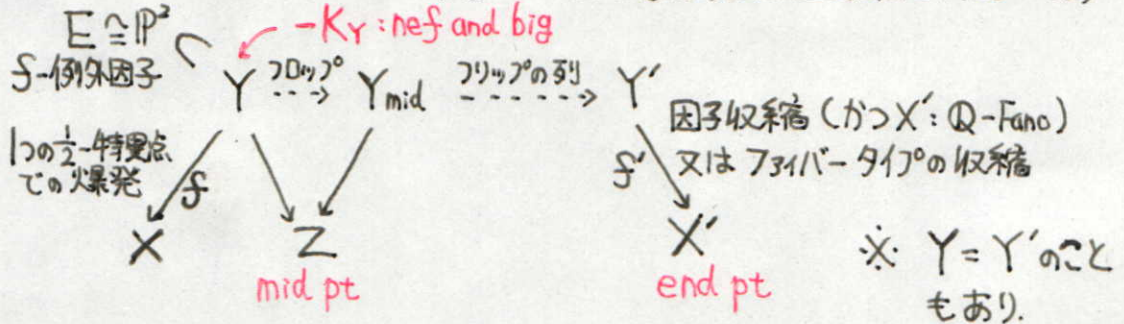 E ≅ ℙ²
f-例外因子
-K_Y : nef and big
Y フロップ Y_mid フリップの列 Y'
1つの½-特異点
での爆発
f
f'
因子収縮 (かつ X' : ℚ-Fano)
又は ファイバータイプの収縮
X Z X'
mid pt
end pt
※ Y = Y' のこと
もあり.